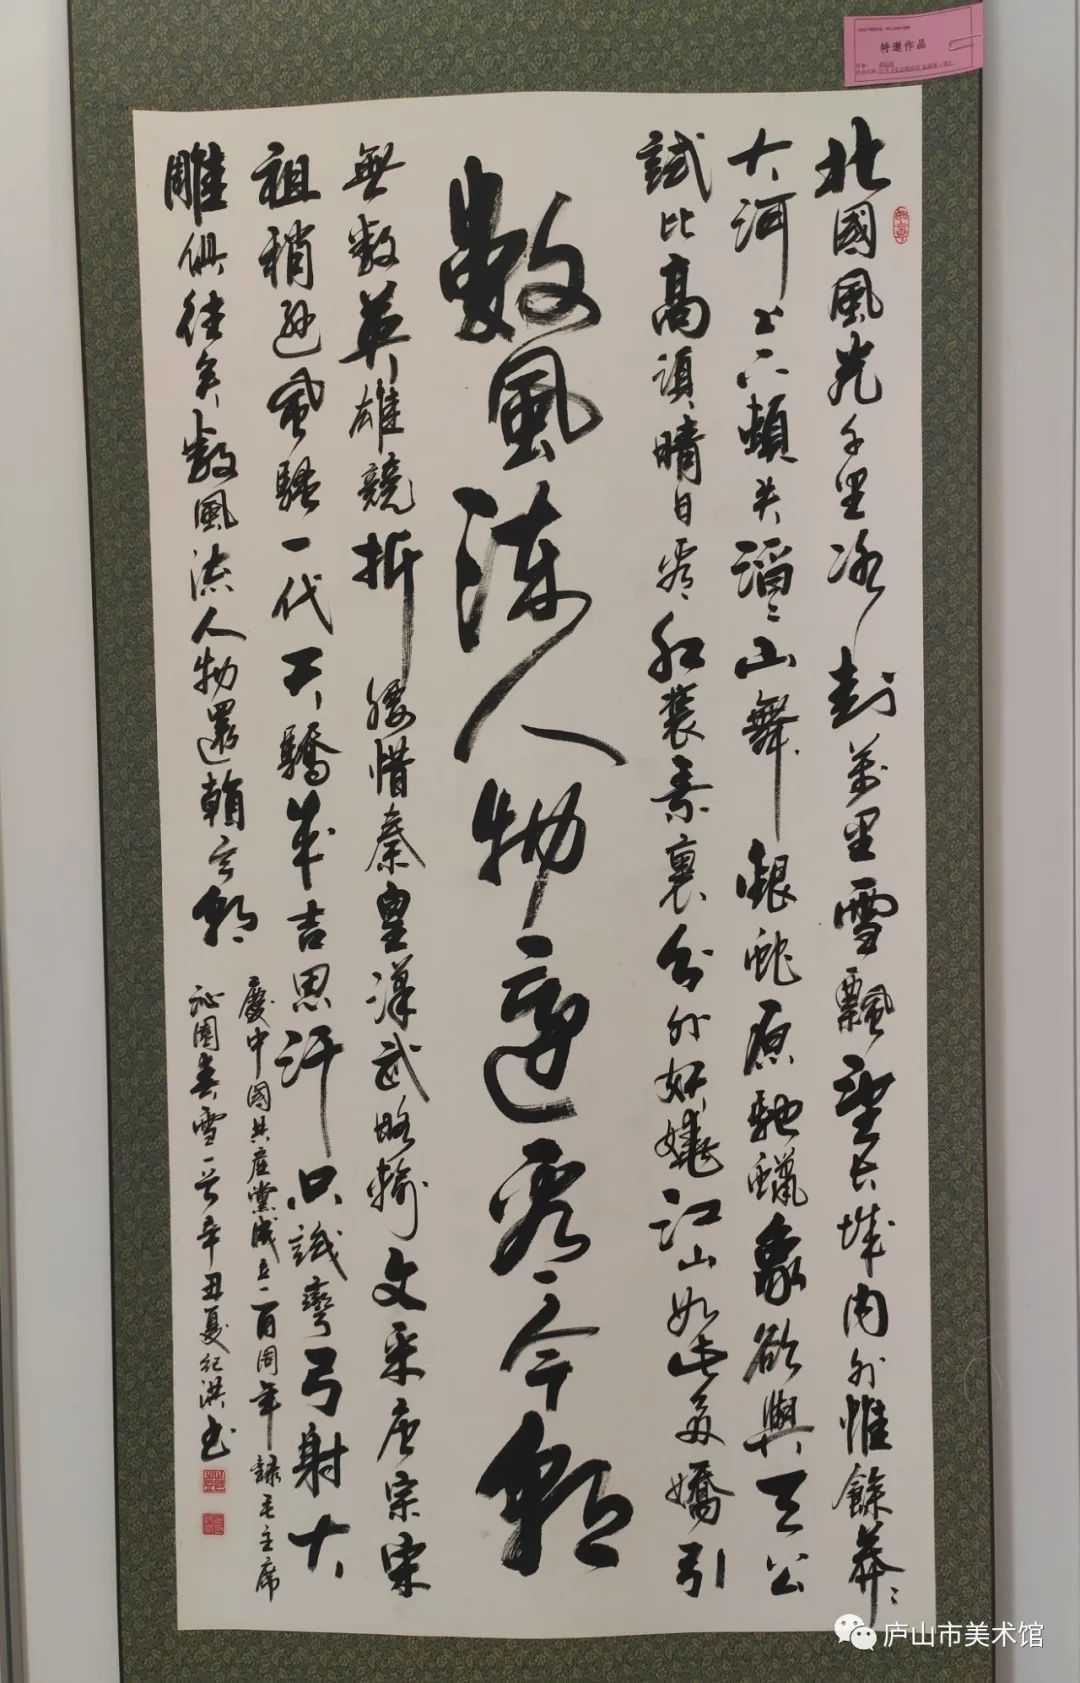 北國風光千里冰封萬里雪飄望長城內外惟餘莽〻
大河上下頓失滔〻山舞銀蛇原馳蠟象欲與天公
試比高須晴日看紅裝素裹分外妖嬈江山如此多嬌引
數風流人物還看今朝
無數英雄競折腰惜秦皇漢武略輸文采唐宗宋
祖稍遜風騷一代天驕成吉思汗只識彎弓射大
雕俱往矣數風流人物還看今朝
慶中國共產黨成立一百周年錄毛主席
沁園春雪一首辛丑夏紀洪書
特邀作品
庐山市美术馆